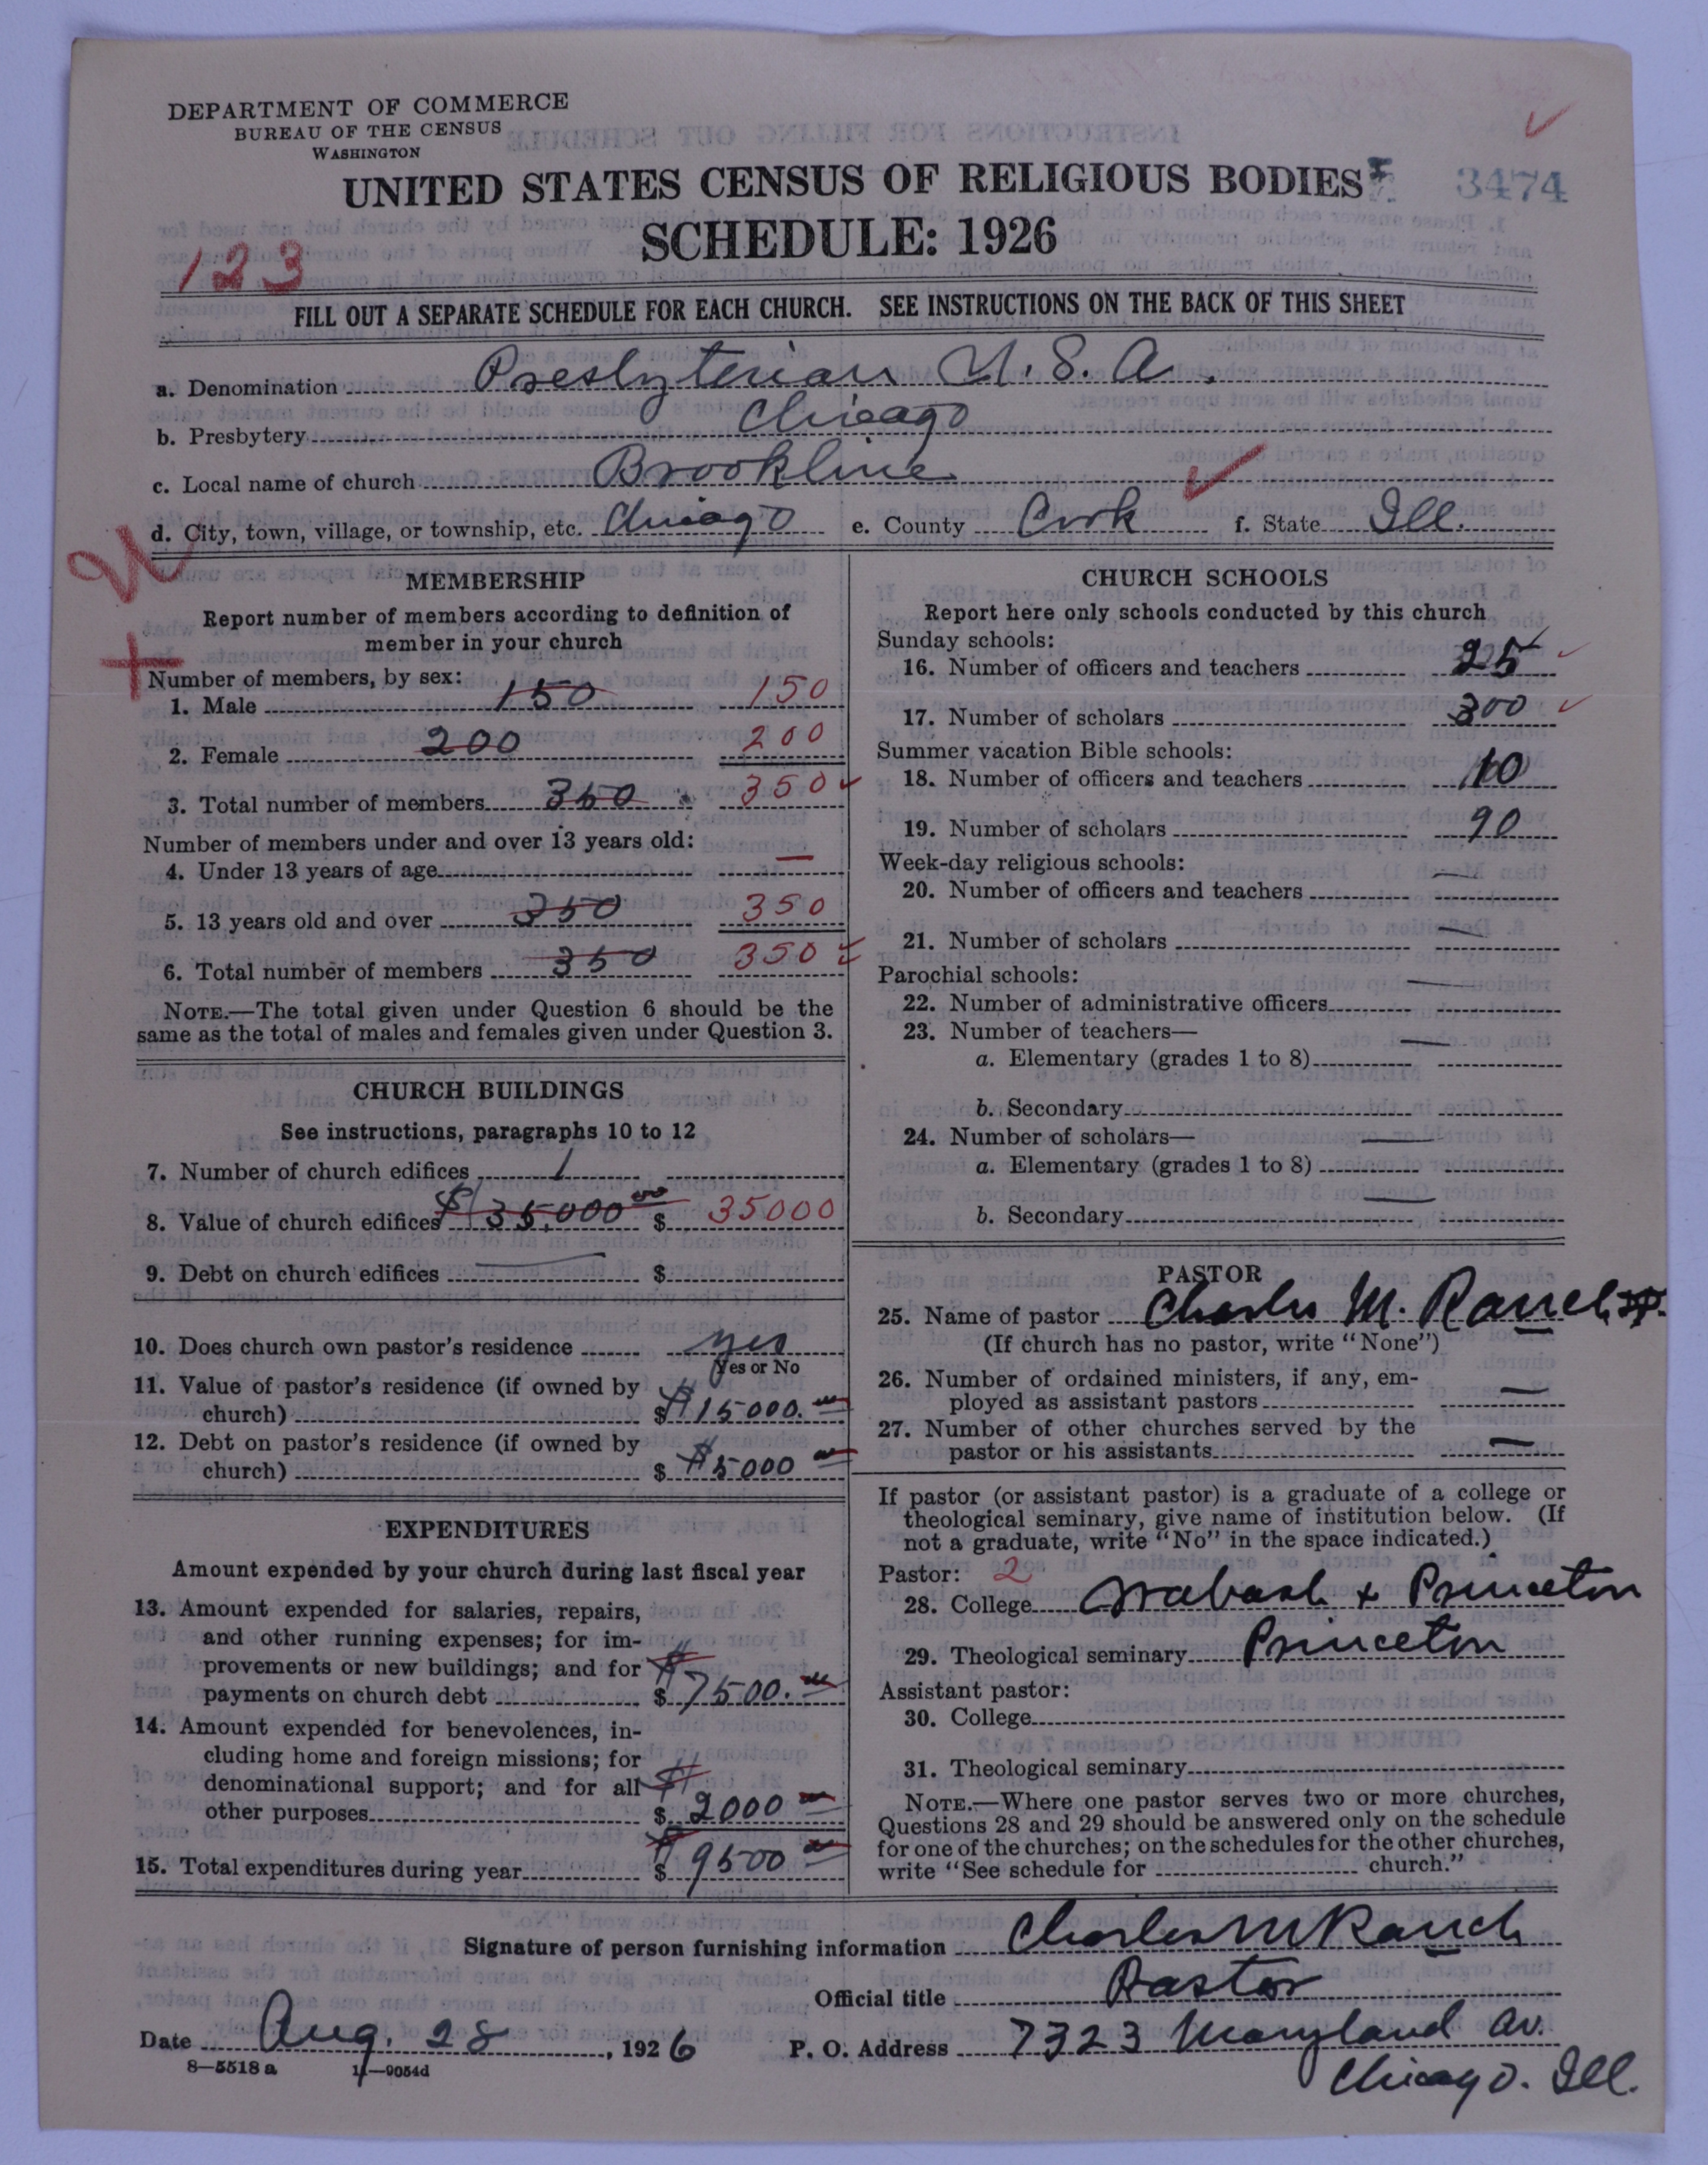 DEPARTMENT OF COMMERCE
BUREAU OF THE CENSUS
WASHINGTON
UNITED STATES CENSUS OF RELIGIOUS BODIES
3474
SCHEDULE: 1926
123
FILL OUT A SEPARATE SCHEDULE FOR EACH CHURCH. SEE INSTRUCTIONS ON THE BACK OF THIS SHEET
a. Denomination Presbyterian U.S.A.
b. Presbytery Chicago
c. Local name of church Brookline
d. City, town, village, or township, etc. Chicago e. County Cook f. State Ill.
MEMBERSHIP
Report number of members according to definition of
member in your church
Number of members, by sex:
1. Male 150 150
2. Female 200 200
3. Total number of members 350 350
Number of members under and over 13 years old:
4. Under 13 years of age —
5. 13 years old and over 350 350
6. Total number of members 350 350
NOTE.—The total given under Question 6 should be the
same as the total of males and females given under Question 3.
CHURCH BUILDINGS
See instructions, paragraphs 10 to 12
7. Number of church edifices 1
8. Value of church edifices $35,000.00 $ 35000
9. Debt on church edifices — $
10. Does church own pastor's residence yes
Yes or No
11. Value of pastor's residence (if owned by
church) $ $15000.00
12. Debt on pastor's residence (if owned by
church) $ $5000 00
EXPENDITURES
Amount expended by your church during last fiscal year
13. Amount expended for salaries, repairs,
and other running expenses; for im-
provements or new buildings; and for
payments on church debt $ 7500.00
14. Amount expended for benevolences, in-
cluding home and foreign missions; for
denominational support; and for all
other purposes $ 2000 00
15. Total expenditures during year $ 9500 00
CHURCH SCHOOLS
Report here only schools conducted by this church
Sunday schools:
16. Number of officers and teachers 25
17. Number of scholars 300
Summer vacation Bible schools:
18. Number of officers and teachers 10
19. Number of scholars 90
Week-day religious schools:
20. Number of officers and teachers —
21. Number of scholars —
Parochial schools:
22. Number of administrative officers —
23. Number of teachers—
a. Elementary (grades 1 to 8) —
b. Secondary
24. Number of scholars—
a. Elementary (grades 1 to 8) —
b. Secondary —
PASTOR
25. Name of pastor Charles M. Rauch
(If church has no pastor, write "None")
26. Number of ordained ministers, if any, em-
ployed as assistant pastors —
27. Number of other churches served by the
pastor or his assistants —
If pastor (or assistant pastor) is a graduate of a college or
theological seminary, give name of institution below. (If
not a graduate, write "No" in the space indicated.)
Pastor: 2
28. College Wabash + Princeton
29. Theological seminary Princeton
Assistant pastor:
30. College
31. Theological seminary
NOTE.—Where one pastor serves two or more churches,
Questions 28 and 29 should be answered only on the schedule
for one of the churches; on the schedules for the other churches,
write "See schedule for church."
Signature of person furnishing information Charles M Rauch
Official title Pastor
Date Aug. 28, 1926 P. O. Address 7323 Maryland Av.
Chicago. Ill.
8—5518 a 11—9054d